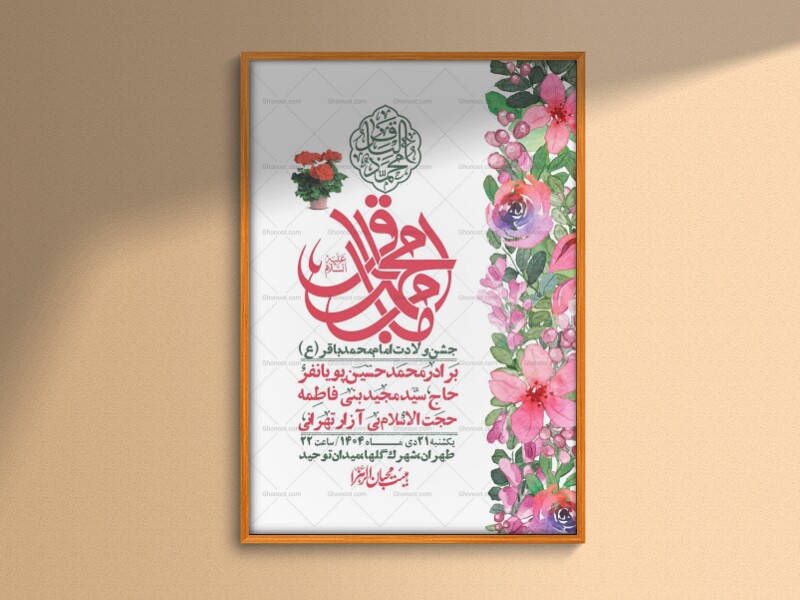 محمد الباقر
امام محمد باقر
علیه السلام
مبارک
جشن ولادت امام محمد باقر (ع)
برادر محمد حسین پویانفر
حاج سید مجید بنی فاطمه
حجت الاسلام بی آزار تهرانی
یکشنبه ۲۱ دی مـــاه ۱۴۰۴ / ساعت ۲۲
طهران، شهرک گلها، میدان توحید
هیئت محبان الزهرا
Ghonoot.com